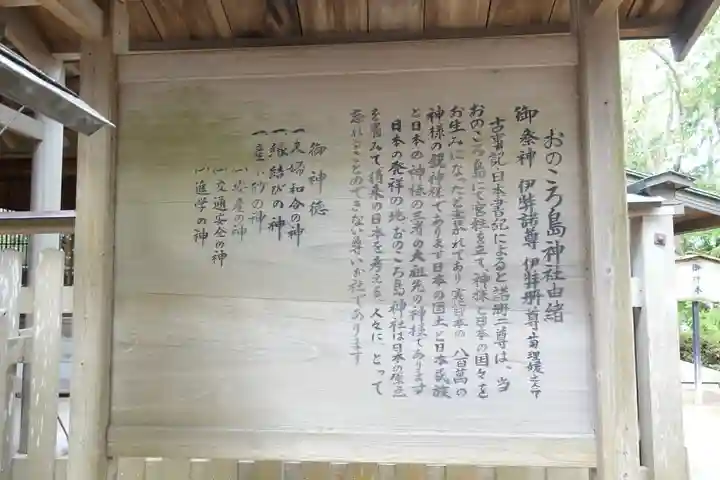 おのころ島神社由緒
御祭神 伊弉諾尊 伊弉冊尊 菊理媛命
古事記日本書記によると諾冊二尊は、当
おのころ島にて宮柱を立て、神様と日本の国々を
お生みになったと書かれてあり 実に日本の 八百萬の
神様の親神様であります日本の国土と日本民族
と日本の神様の三者の大祖先の神様であります
日本の発祥の地おのころ島神社は日本の原点
を省みて将来の日本を考える人々にとって
忘れることのできない尊いお社であります
御神徳
一夫婦和合の神
一縁結びの神
一産い砂の神
一安産の神
一交通安全の神
一進学の神